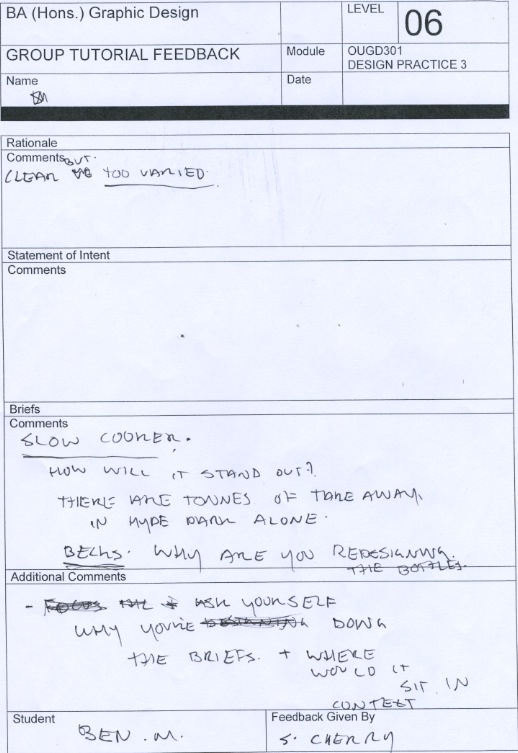 BA (Hons.) Graphic Design
LEVEL
06
GROUP TUTORIAL FEEDBACK
Module
OUGD301
DESIGN PRACTICE 3
Name
Date
BM
Rationale
Comments
BUT.
CLEAR TOO VARIED
Statement of Intent
Comments
Briefs
Comments
SLOW COOKER.
HOW WILL IT STAND OUT?
THERE ARE TONNES OF TAKE AWAY,
IN HYDE PARK ALONE.
BECKS. WHY ARE YOU REDESIGNING.
THE BOTTLES.
Additional Comments
- ASK YOURSELF
WHY YOU'RE DOING
THE BRIEFS. + WHERE
WOULD IT
SIT IN
CONTEXT
Student
BEN .M.
Feedback Given By
S. CHERRY